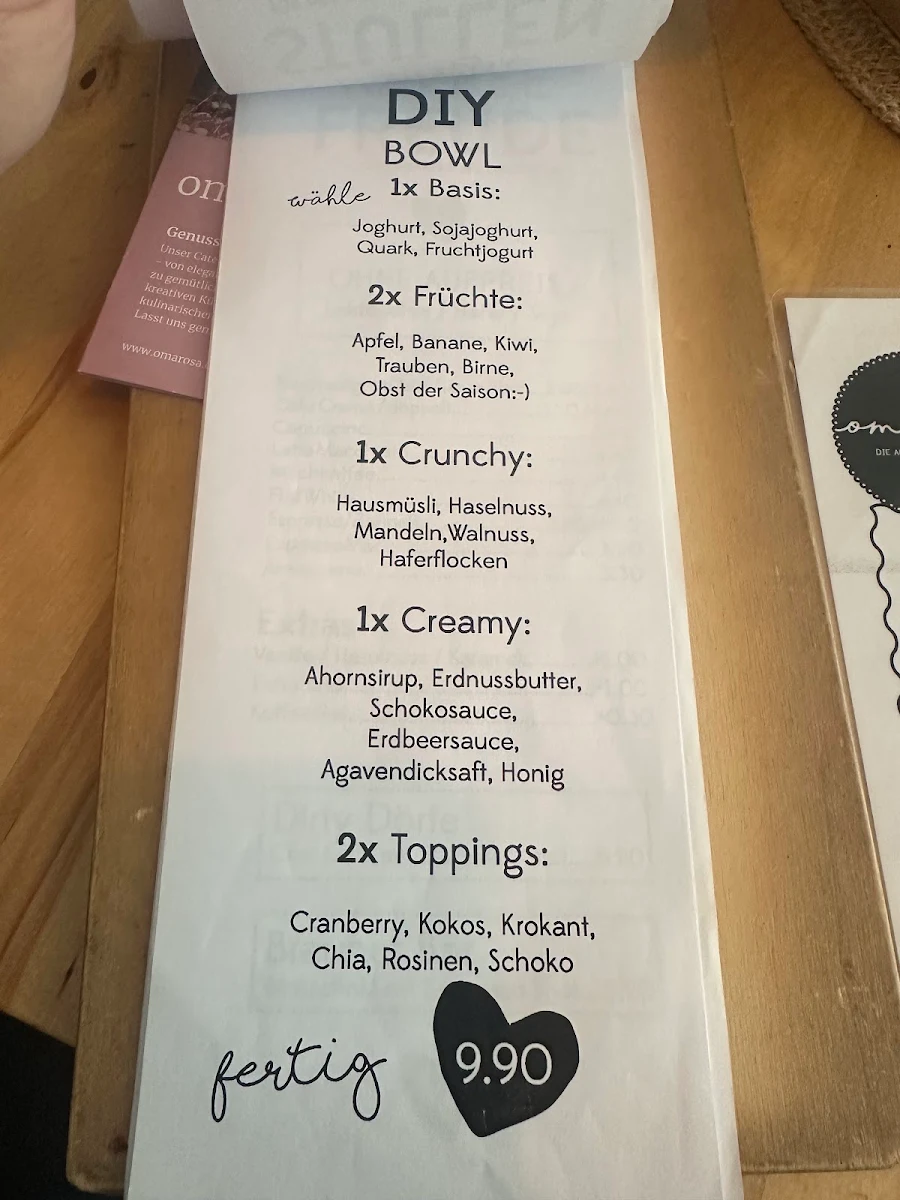 STULLEN
DIY
BOWL
wähle 1x Basis:
Joghurt, Sojajoghurt,
Quark, Fruchtjogurt
2x Früchte:
Apfel, Banane, Kiwi,
Trauben, Birne,
Obst der Saison:-)
1x Crunchy:
Hausmüsli, Haselnuss,
Mandeln,Walnuss,
Haferflocken
1x Creamy:
Ahornsirup, Erdnussbutter,
Schokosauce,
Erdbeersauce,
Agavendicksaft, Honig
2x Toppings:
Cranberry, Kokos, Krokant,
Chia, Rosinen, Schoko
fertig 9.90
om
Genuss
Unser Cate
– von elega
zu gemütlic
kreativen Kü
kulinarische
Lasst uns gen
www.omarosa.
om
DIE